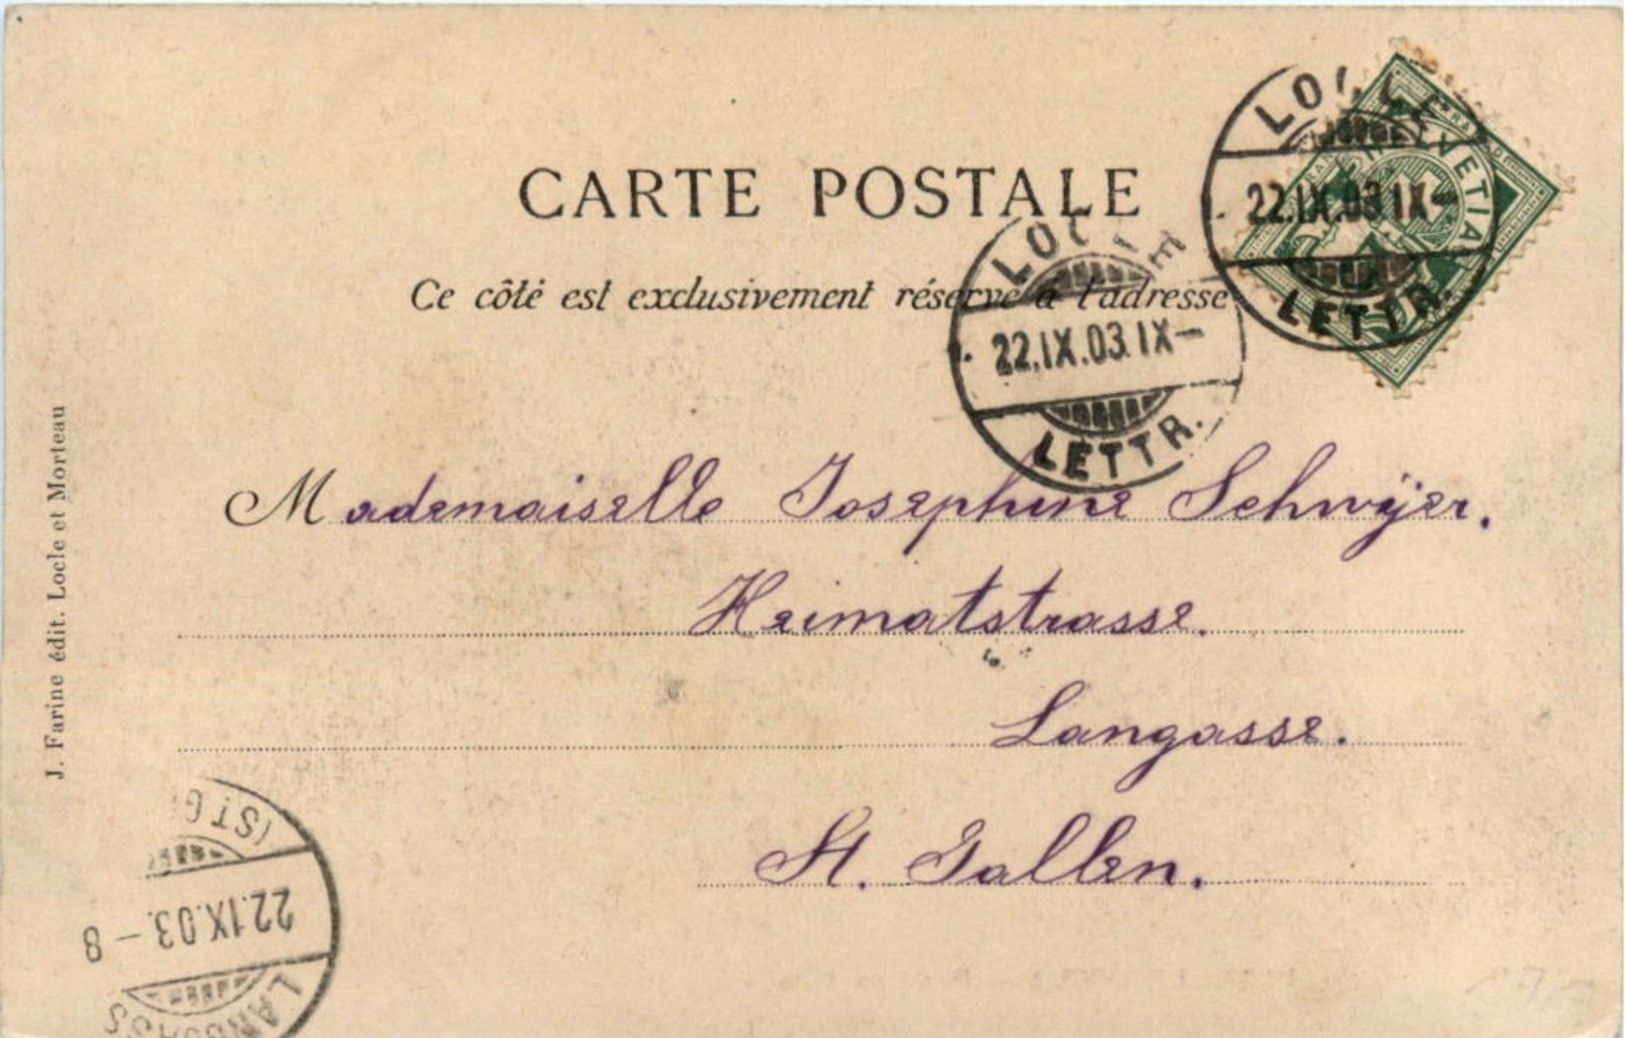 CARTE POSTALE
Ce côté est exclusivement réservé à l'adresse
LOCLE
22.IX.03.IX—
LETTR.
LOCLE
22.IX.03.IX—
LETTR.
HELVETIA
Mademaiselle Josephine Schwÿer.
Heimatstrasse.
Langasse.
St. Gallen.
J. Farine édit. Locle et Morteau
22.IX.03.—8
(ST G